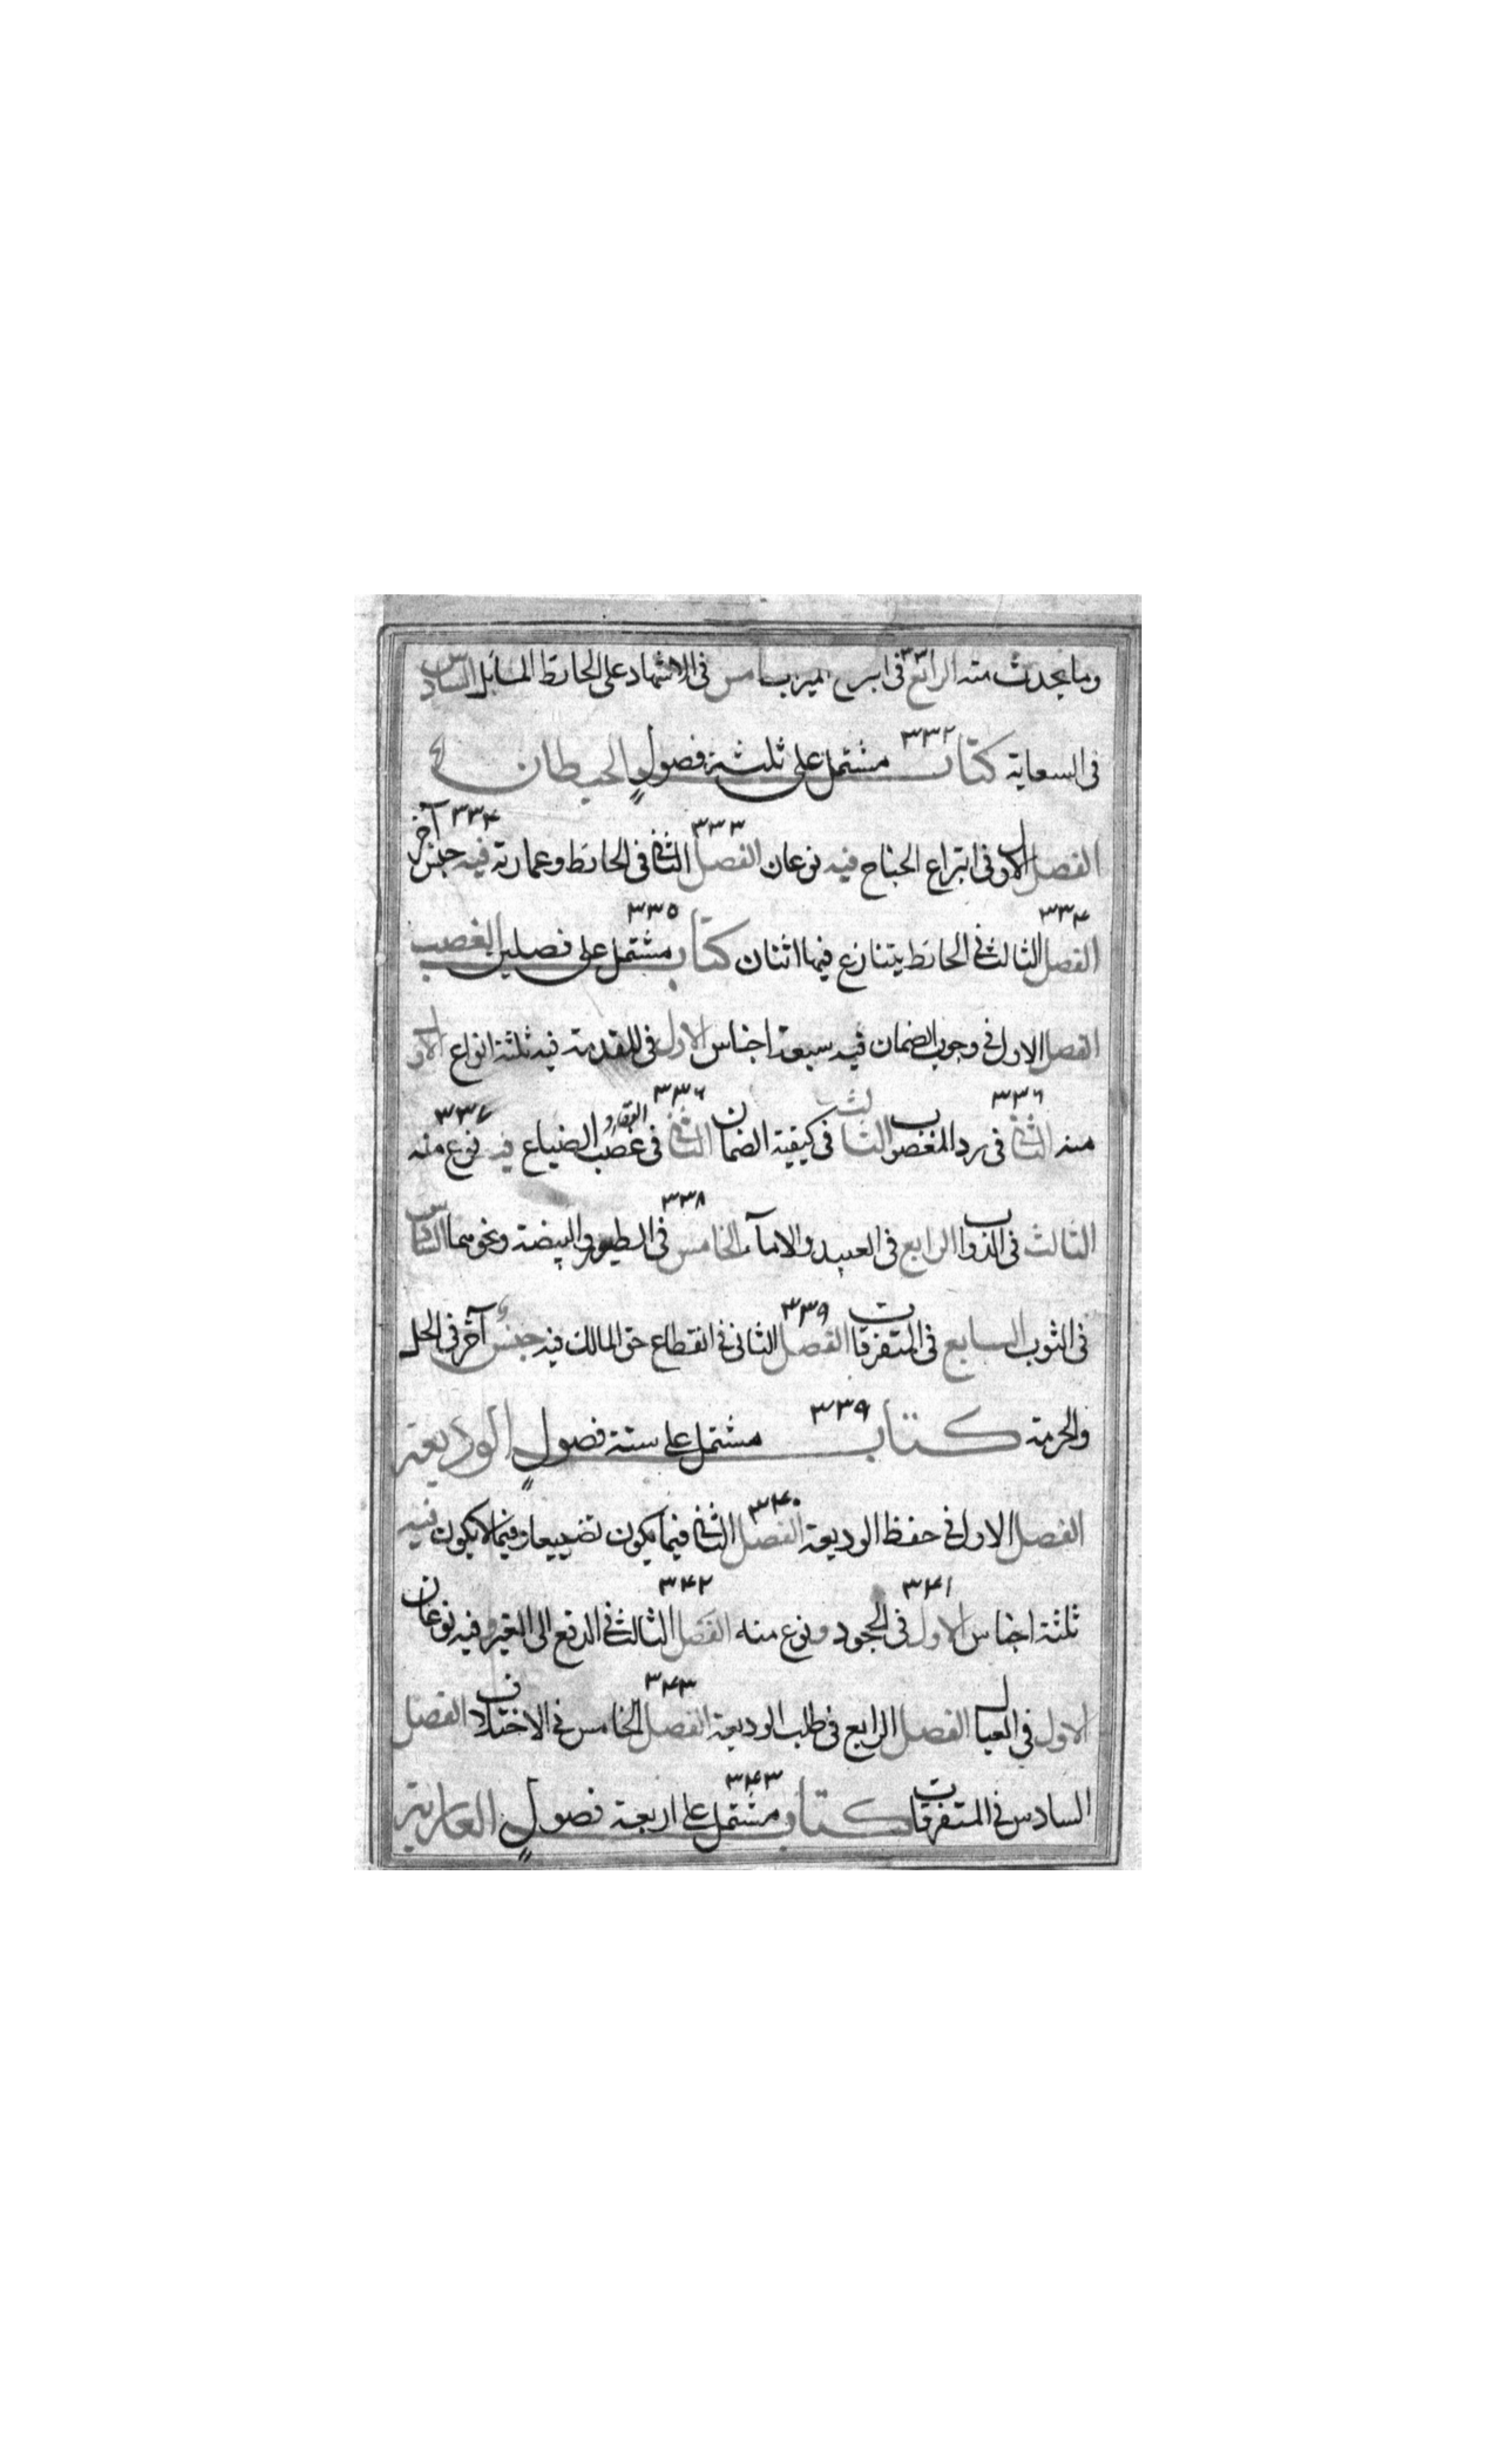 وما يحدث منه الرابع فى الميزاب الخامس فى الاشهاد على الحائط المائل السادس
فى السعاية كتاب ٣٣٢ الحيطان مشتمل على ثلثة فصول
الفصل الاول فى ابتراع الجناح فيه نوعان الفصل ٣٣٣ الثانى فى الحائط وعمارته فيه جنس آخر ٣٣٤
الفصل ٣٣٤ الثالث فى الحائط يتنازع فيها اثنان كتاب ٣٣٥ الغصب مشتمل على فصلين
الفصل الاول فى وجوب الضمان فيه سبعة اجناس الاول فى المقدمة فيه ثلثة انواع الاول
منه الثانى ٣٣٦ فى رد المغصوب الثالث فى كيفية الضمان الثانى ٣٣٦ فى غصب العقار و الضياع فيه نوع منه ٣٣٧
الثالث فى الدواب الرابع فى العبيد والاماء الخامس ٣٣٨ فى الطيور والبيضة ونحوهما السادس
فى الثوب السابع فى المتفرقات الفصل ٣٣٩ الثانى فى انقطاع حق المالك فيه جنس آخر فى الحل
والحرمة كتاب ٣٣٩ الوديعة مشتمل على ستة فصول
الفصل الاول فى حفظ الوديعة الفصل ٣٤٠ الثانى فيما يكون تضييعا وفيما لا يكون فيه
ثلثة اجناس الاول ٣٤١ فى الجحود ونوع منه الفصل ٣٤٢ الثالث فى الدفع الى الغير وفيه نوعان
الاول فى العيال الفصل الرابع فى طلب الوديعة الفصل ٣٤٣ الخامس فى الاختلاف الفصل
السادس فى المتفرقات كتاب ٣٤٣ العارية مشتمل على اربعة فصول